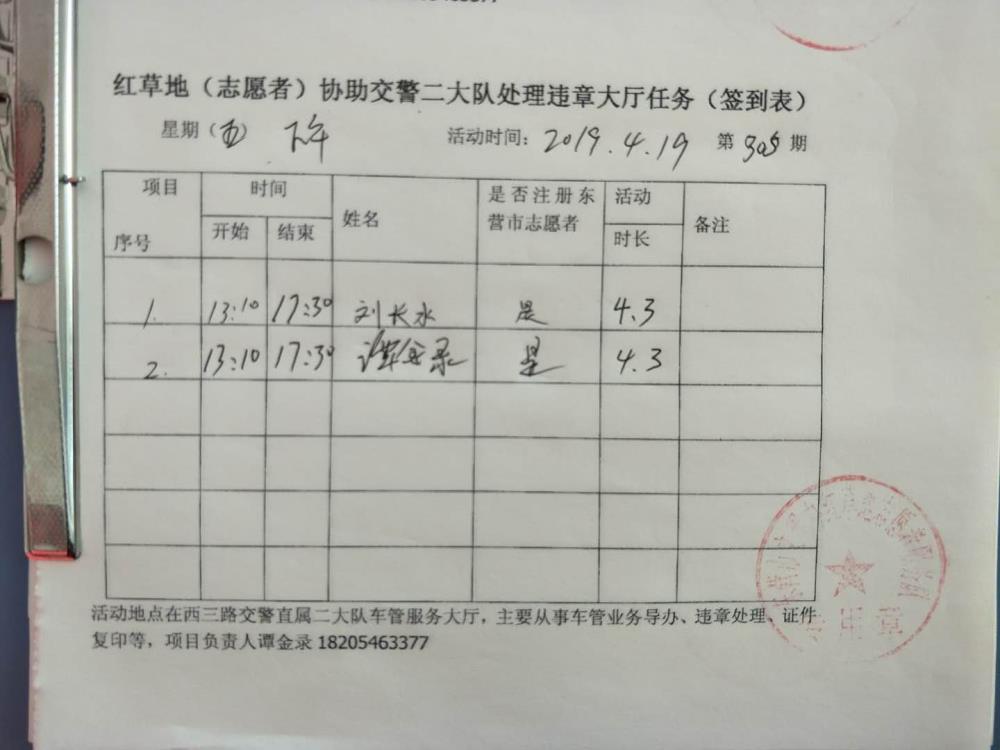 红草地（志愿者）协助交警二大队处理违章大厅任务（签到表）
星期（五） 下午 活动时间：2019.4.19 第305期
项目 时间 姓名 是否注册东营市志愿者 活动时长 备注
序号 开始 结束
1. 13:10 17:30 刘长水 是 4.3
2. 13:10 17:30 谭金录 是 4.3
活动地点在西三路交警直属二大队车管服务大厅，主要从事车管业务导办、违章处理、证件
复印等，项目负责人谭金录 18205463377